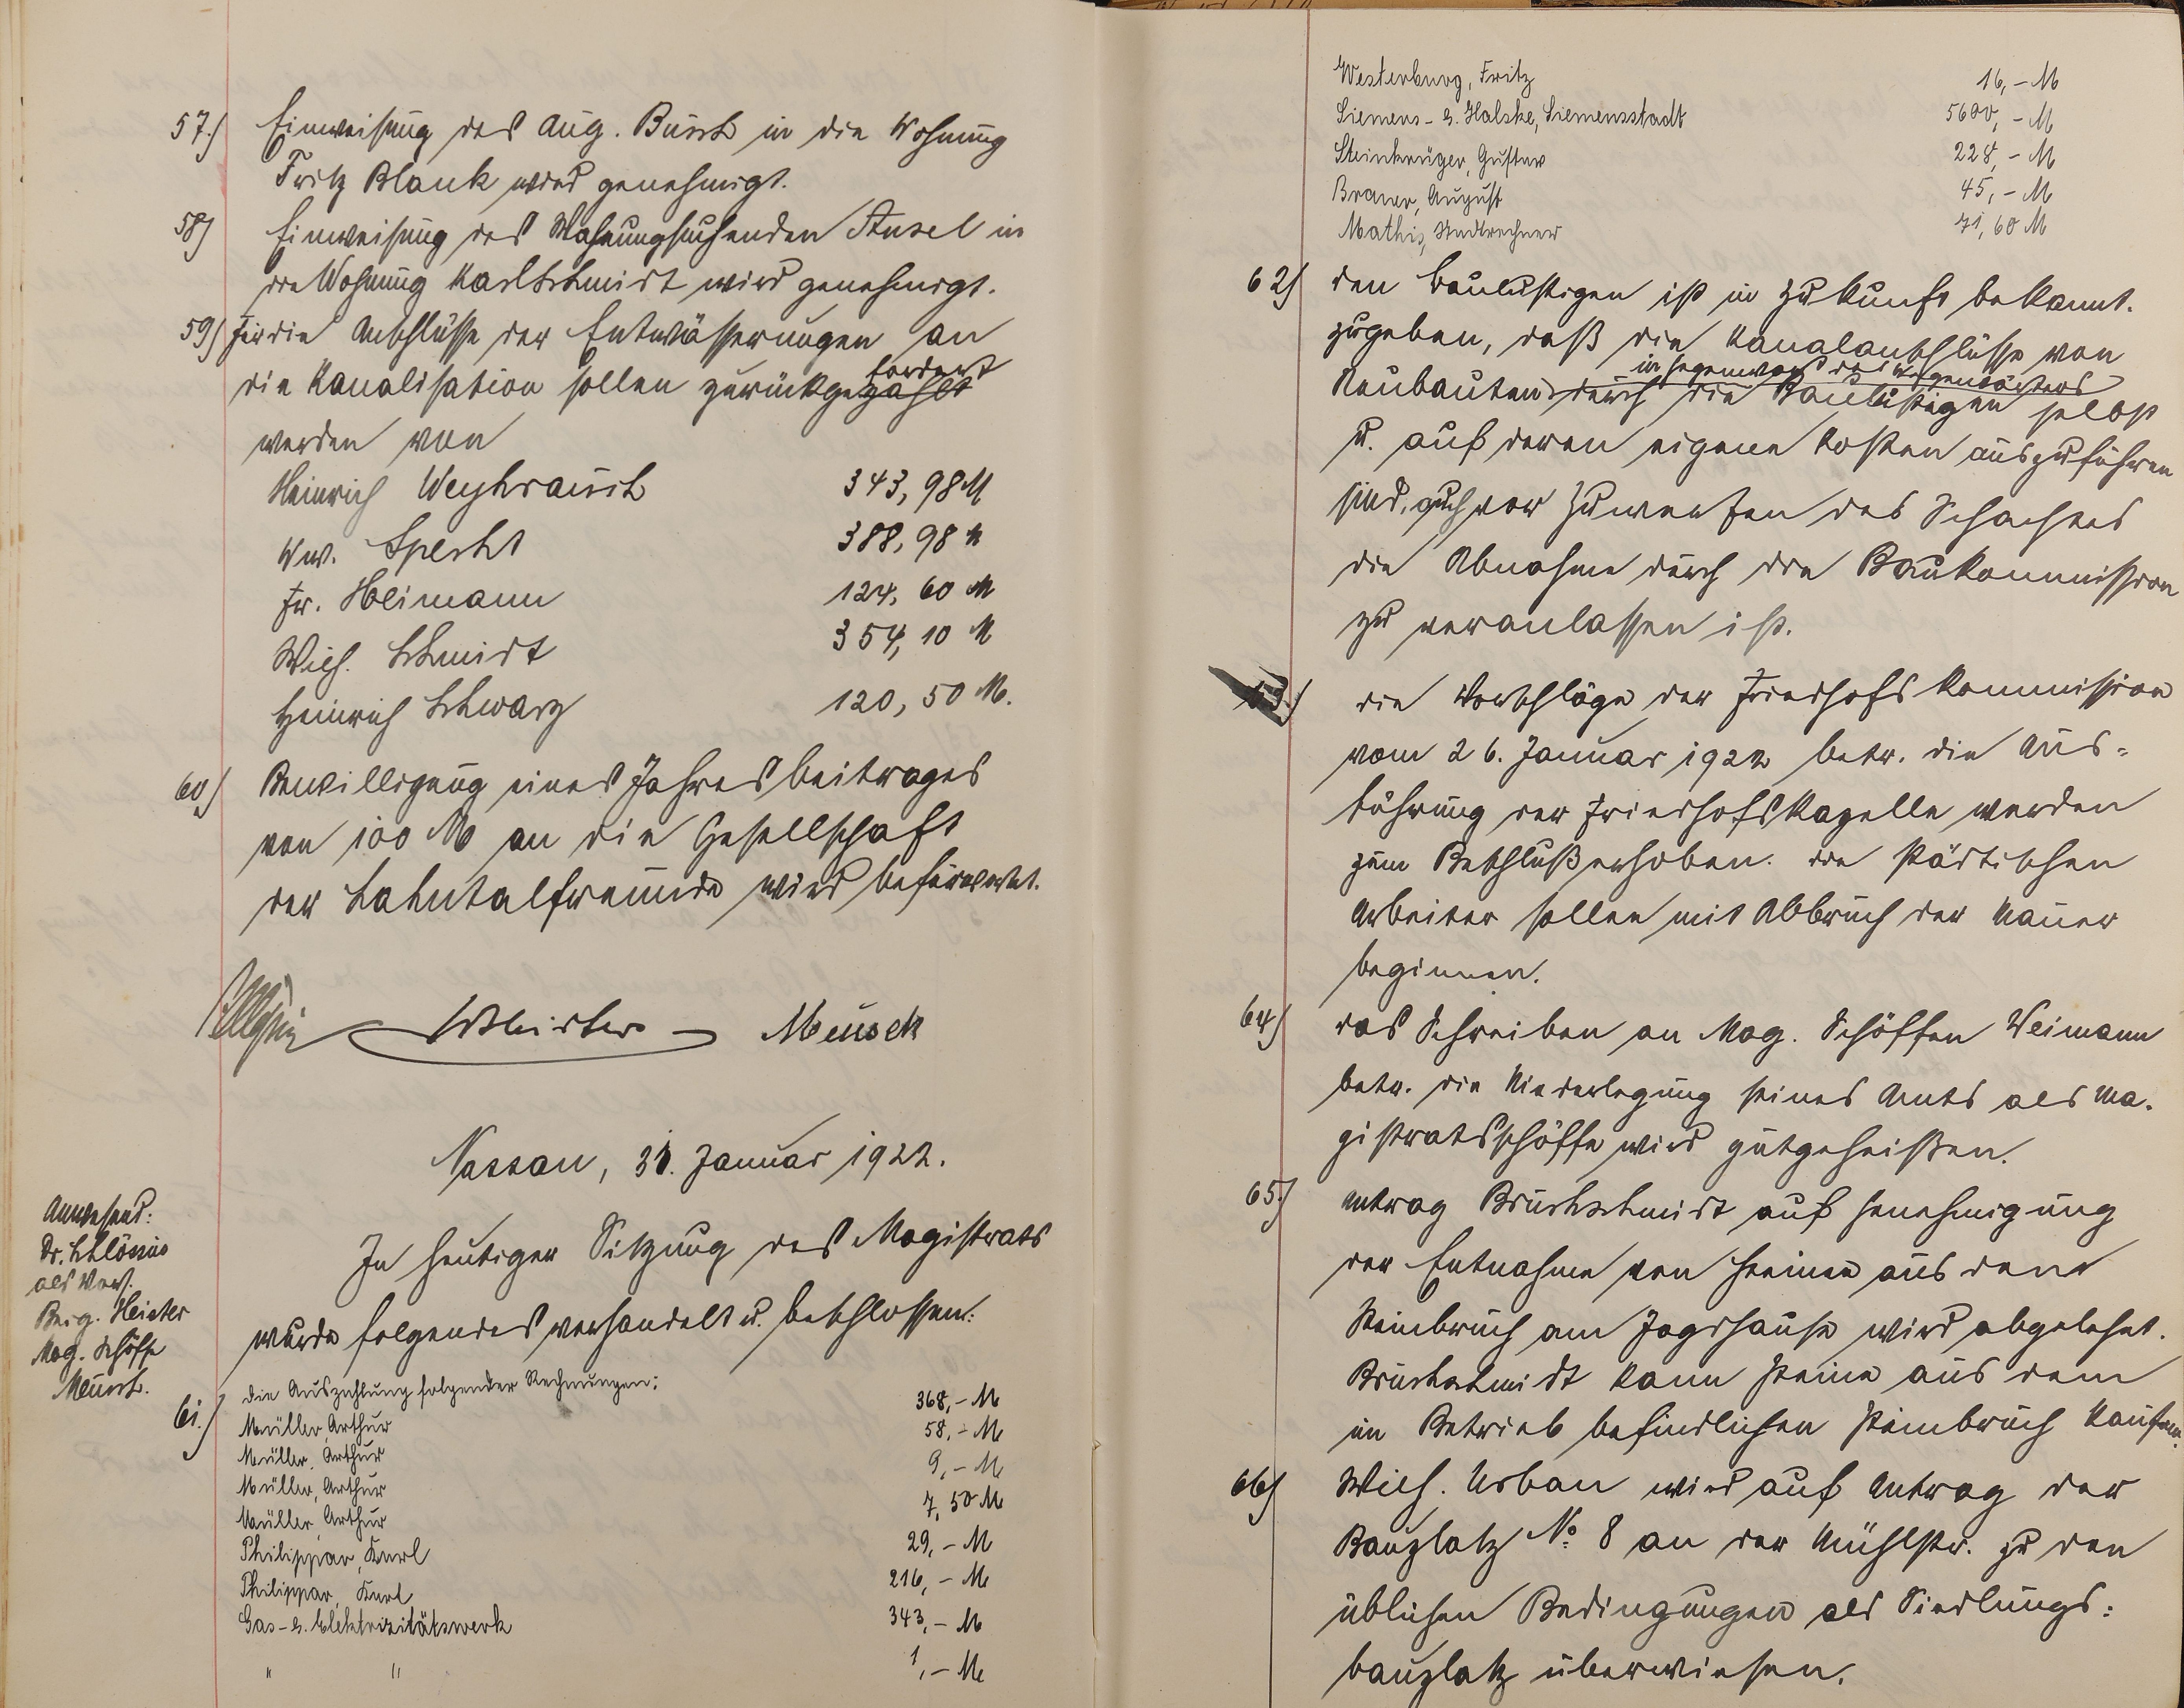 57.) Einweisung des Aug. Busch in die Wohnung
Fritz Blank wird genehmigt.
58) Einweisung des Wohnungsuchenden Stusel in
die Wohnung Karl Schmidt wird genehmigt.
59) Für die Anschlüsse der Entwässerungen an
die Kanalisation sollen zurückgezahlt fordert
werden von
Heinrich Weyhrauch 343,98 M
Ww. Specht 388,98 M
Fr. Heimann 124,60 M
Wilh. Schmidt 354,10 M
Heinrich Schwarz 120,50 M.
60) Bewilligung eines Jahresbeitrages
von 100 M an die Gesellschaft
der Lahntalfreunde wird befürwortet.
Meusch
Nassau, 31. Januar 1922.
Anwesend:
Dr. Schlösin
als Vors.
Beig. Heister
Mag. Schöffe
Meusch.
In heutiger Sitzung des Magistrats
wurde folgendes verhandelt u. beschlossen:
61.) Die Auszahlung folgender Rechnungen:
Müller, Arthur 368,- M
Müller, Arthur 58,- M
Müller, Arthur 9,- M
Müller, Arthur 7,50 M
Philippar, Karl 29,- M
Philippar, Karl 216,- M
Gas- & Elektrizitätswerk 343,- M
" " 1,- M
Westerburg, Fritz 16,- M
Siemens- & Halske, Siemensstadt 5600,- M
Steinkrüger, Gustav 228,- M
Braner, August 45,- M
Mathis, Stadtrechner 71,60 M
62) Den Baulustigen ist in Zukunft bekannt-
zugeben, daß die Kanalanschlüsse von
in Gegenwart des
Neubauten durch die Baulustigen selbst
u. auf deren eigene Kosten auszuführen
sind, auch vor Zuwerfen des Schachtes
die Abnahme durch die Baukommission
zu veranlassen ist.
63.) Die Vorschläge der Friedhofskommission
vom 26. Januar 1922 betr. die Aus-
führung der Friedhofskapelle werden
zum Beschluß erhoben. Die städtischen
Arbeiter sollen mit Abbruch der Mauer
beginnen.
64) Das Schreiben an Mag. Schöffen Weimann
betr. die Niederlegung seines Amts als Ma-
gistratsschöffe wird gutgeheißen.
65.) Antrag Bruchschmidt auf Genehmigung
der Entnahme von Steinen aus dem
Steinbruch am Jagdhause wird abgelehnt.
Bruchschmidt kann Steine aus dem
im Betrieb befindlichen Steinbruch kaufen.
66) Wilh. Urban wird auf Antrag der
Bauplatz No 8 an der Mühlstr. zu den
üblichen Bedingungen als Siedlungs-
bauplatz überwiesen.